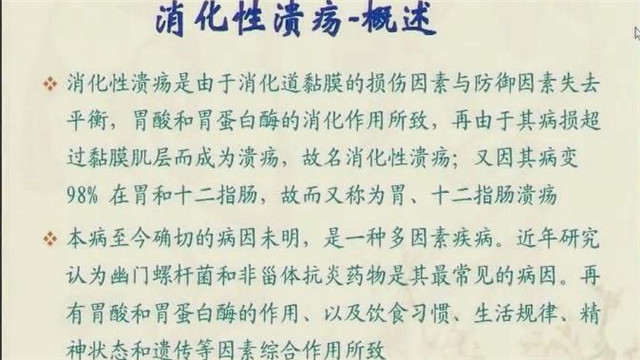 消化性溃疡-概述
消化性溃疡是由于消化道黏膜的损伤因素与防御因素失去
平衡，胃酸和胃蛋白酶的消化作用所致，再由于其病损超
过黏膜肌层而成为溃疡，故名消化性溃疡；又因其病变
98% 在胃和十二指肠，故而又称为胃、十二指肠溃疡
本病至今确切的病因未明，是一种多因素疾病。近年研究
认为幽门螺杆菌和非甾体抗炎药物是其最常见的病因。再
有胃酸和胃蛋白酶的作用、以及饮食习惯、生活规律、精
神状态和遗传等因素综合作用所致